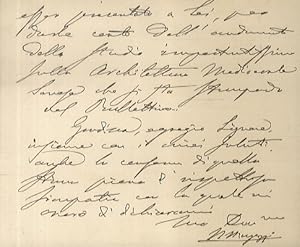 esser presentato a Lei, per
darne conto dell'andamento
dello studio importantissimo
sulla Architettura Medioevale
che si sta stampando
dal Bullettino.
Gradisca, egregio Signore,
insieme con i miei saluti
anche la conferma di quella
piena di rispettosa
simpatia con la quale mi
onoro di dichiararmi
Suo